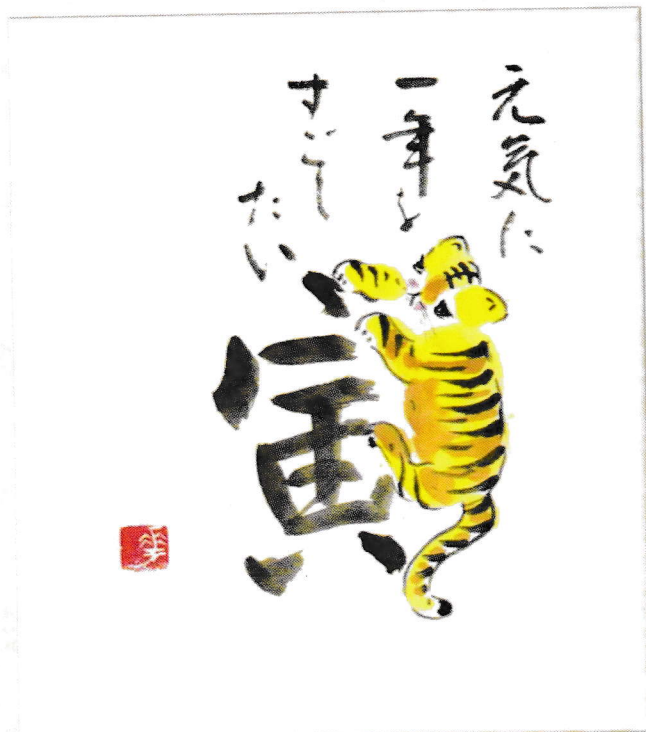 元気に
一年を
すごし
たい
寅